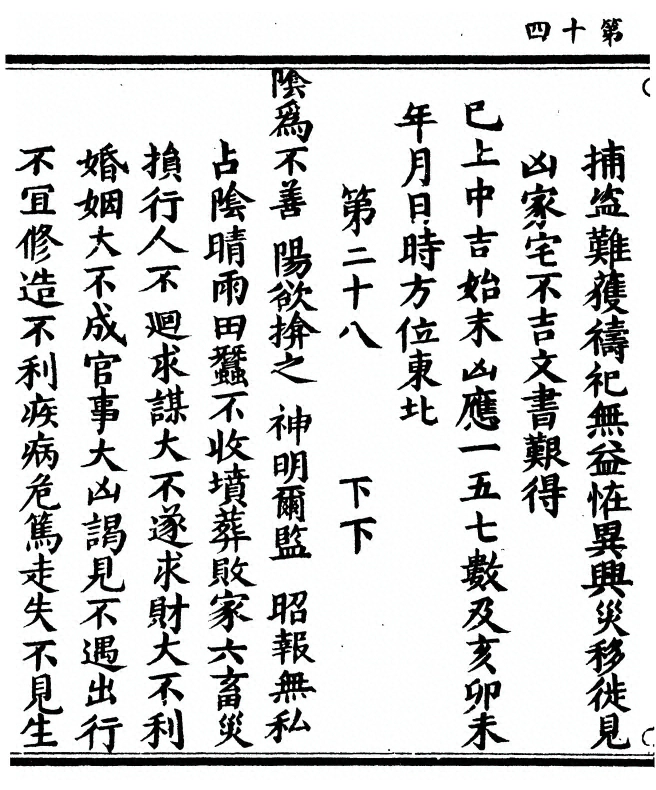 第十四
捕盜難獲禱祀無益怪異興災移徙見
凶家宅不吉文書艱得
已上中吉始末凶應一五七數及亥卯未
年月日時方位東北
第二十八 下下
陰爲不善 陽欲揜之 神明爾監 昭報無私
占陰晴雨田蠶不收墳葬敗家六畜災
損行人不迴求謀大不遂求財大不利
婚姻大不成官事大凶謁見不遇出行
不冝修造不利疾病危篤走失不見生